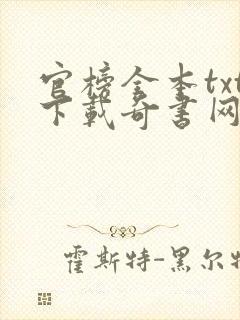 官榜全本txt
下载奇书网
霍斯特-黑尔特